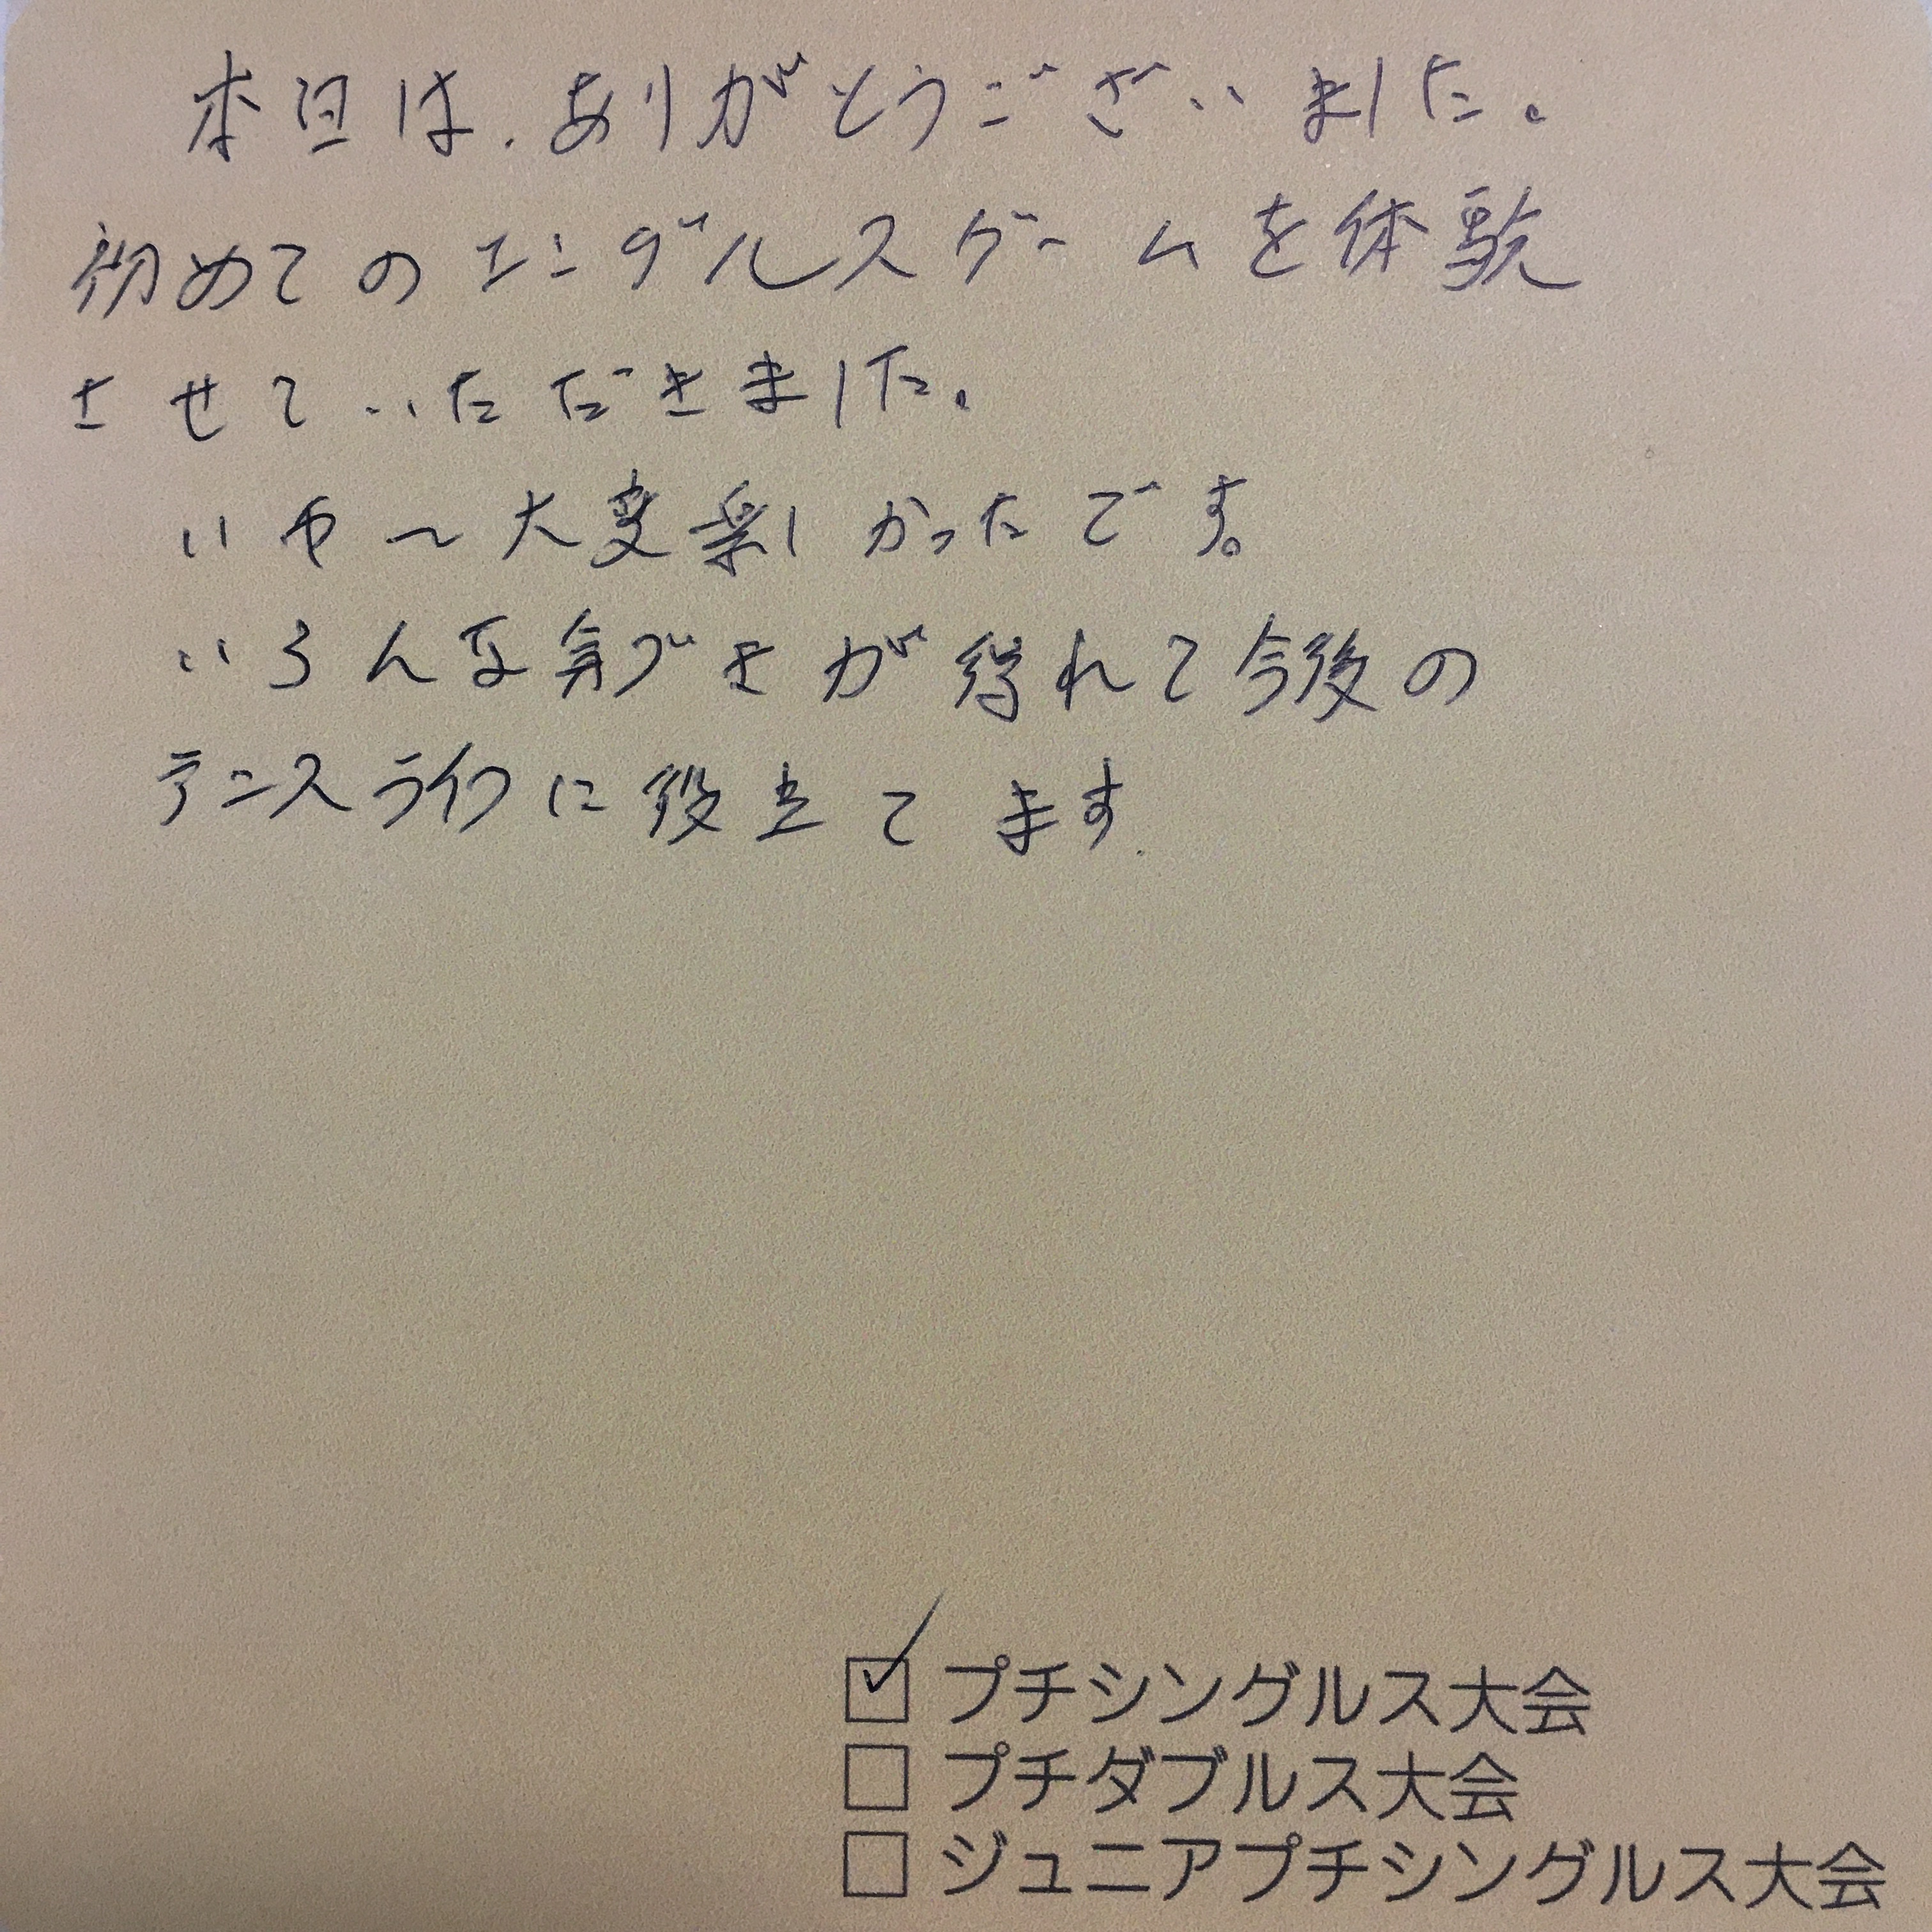 本日は、ありがとうございました。
初めてのシングルスゲームを体験
させていただきました。
いや〜大変楽しかったです。
いろんな気づきが得れて今後の
テニスライフに役立てます.
☑プチシングルス大会
□プチダブルス大会
□ジュニアプチシングルス大会